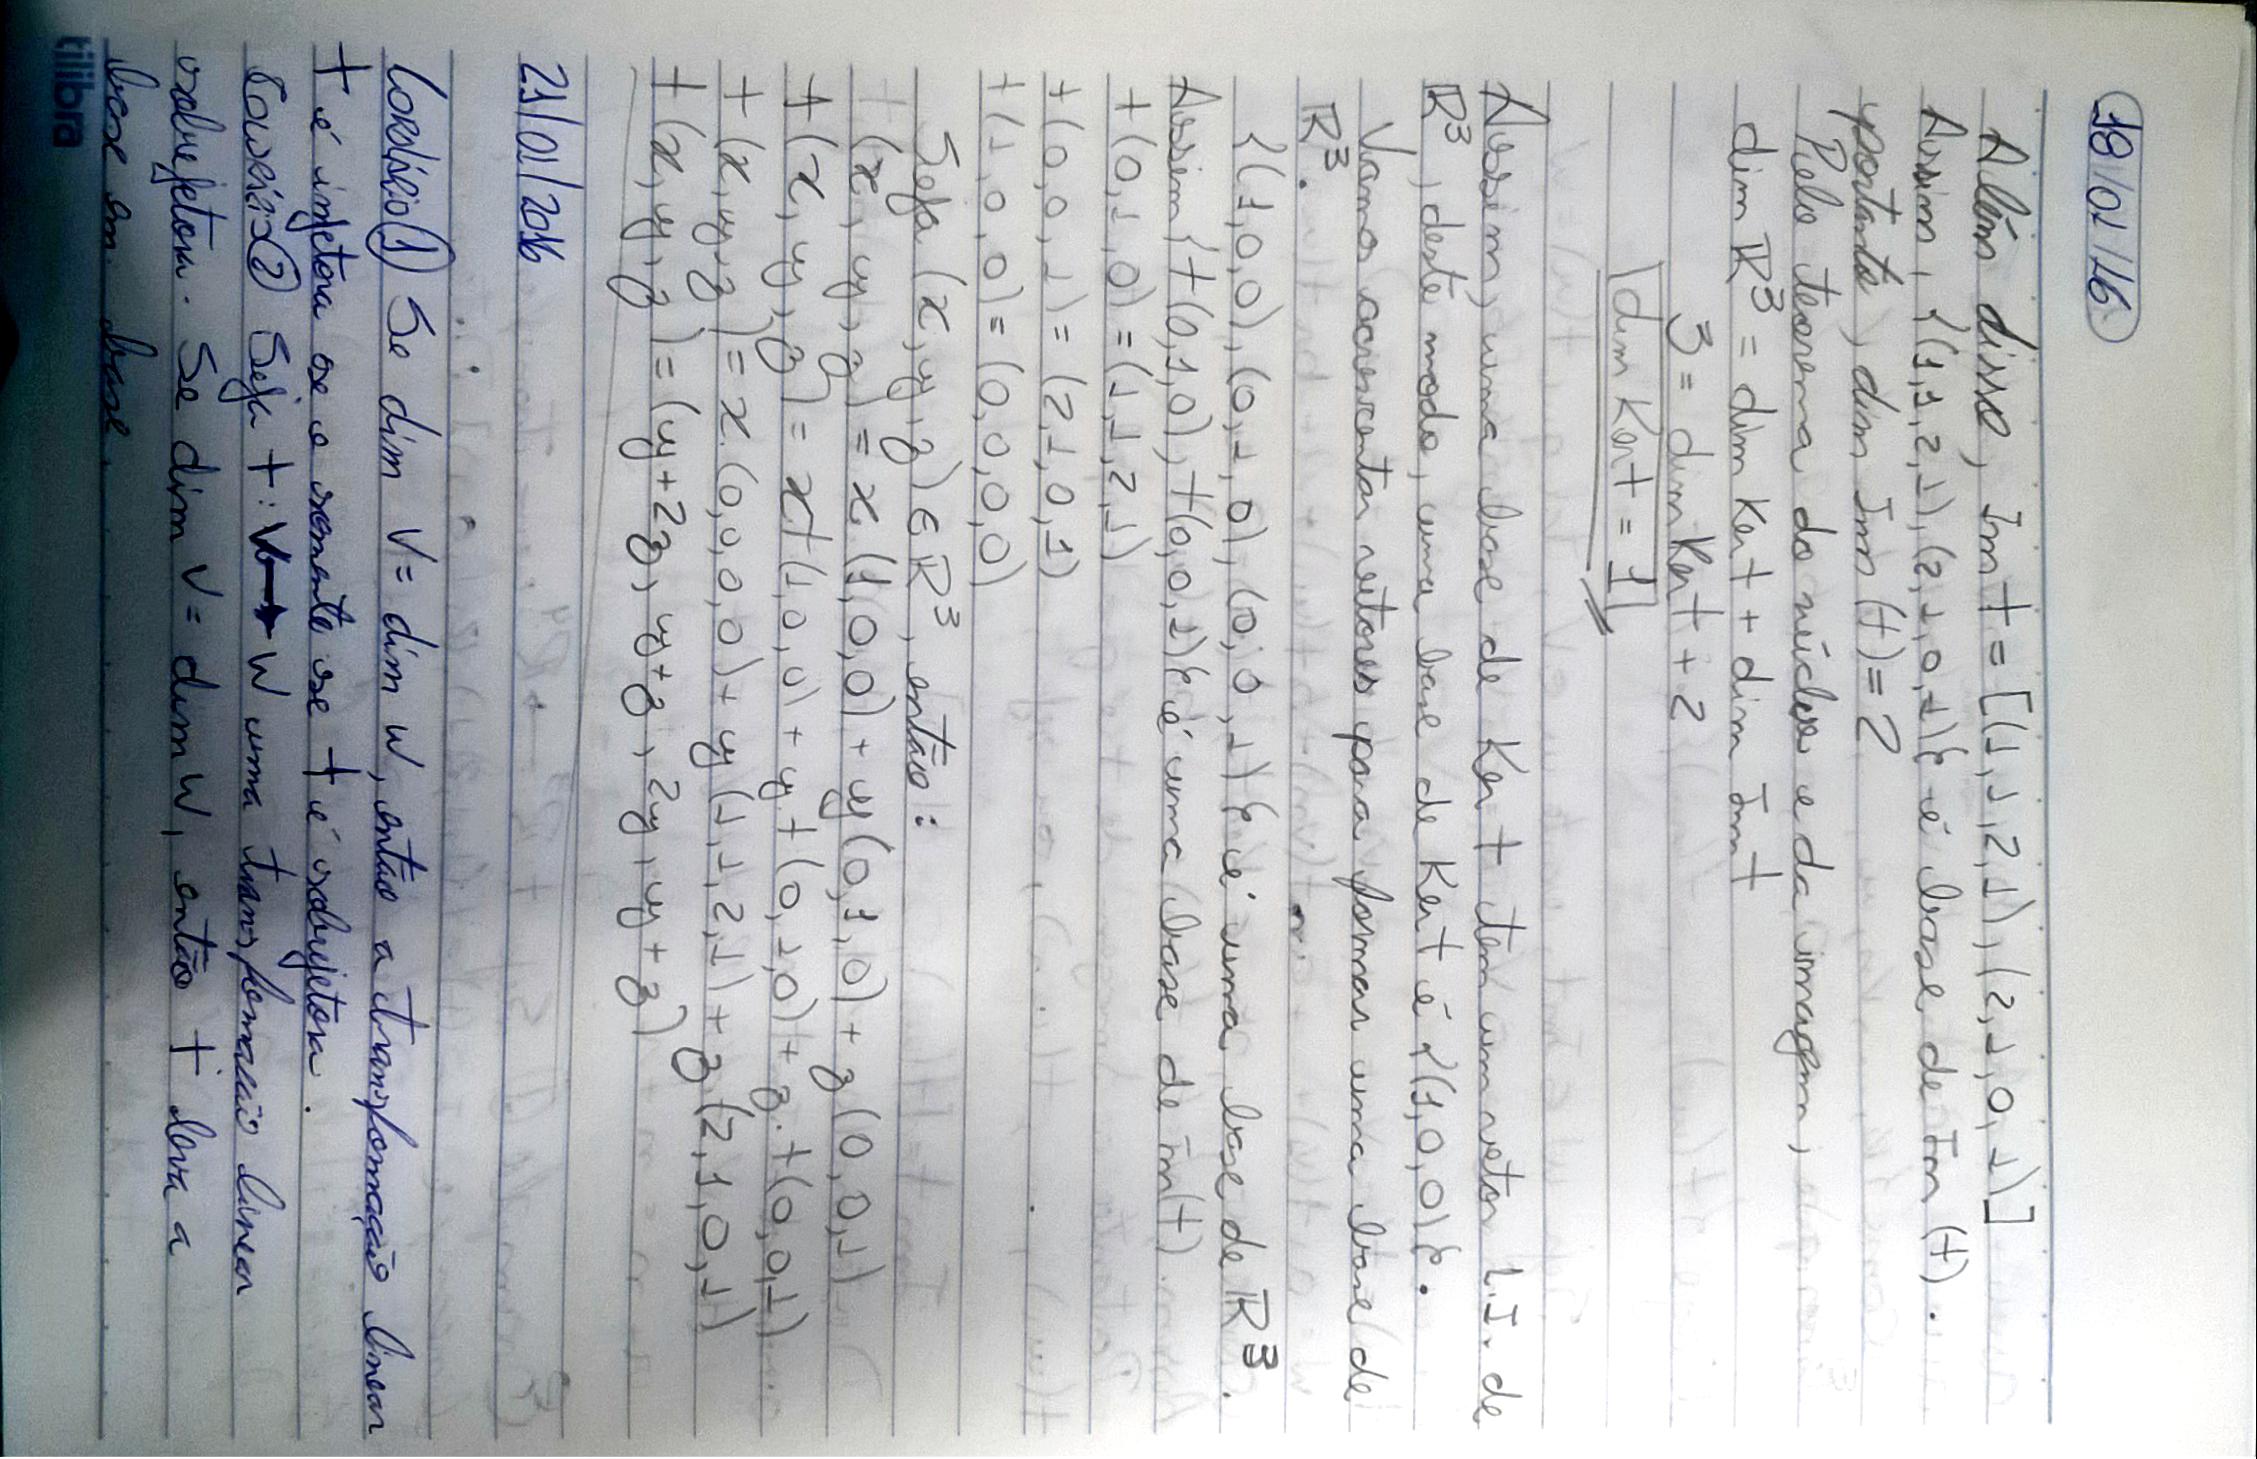 18/01/16
Além disso, Im t = [(1,1,2,1), (2,1,0,1)]
Assim, {(1,1,2,1), (2,1,0,1)} é base de Im (t).
portanto, dim Im (t) = 2
Pelo teorema do núcleo e da imagem,
dim ℝ³ = dim Ker t + dim Im t
3 = dim Ker t + 2
dim Ker t = 1
Assim, uma base de Ker t tem um vetor L.I. de
ℝ³, deste modo, uma base de Ker t é {(1,0,0)}.
Vamos acrescentar vetores para formar uma base de
ℝ³.
{(1,0,0), (0,1,0), (0,0,1)} é uma base de ℝ³.
Assim {t(0,1,0), t(0,0,1)} é uma base de im(t).
t(0,1,0) = (1,1,2,1)
t(0,0,1) = (2,1,0,1)
t(1,0,0) = (0,0,0,0)
Seja (x,y,z) ∈ ℝ³, então:
(x, y, z) = x (1,0,0) + y (0,1,0) + z (0,0,1)
t(x, y, z) = xt(1,0,0) + y.t(0,1,0) + z.t(0,0,1)
t(x,y,z) = x.(0,0,0,0) + y (1,1,2,1) + z (2,1,0,1)
t(x,y,z) = (y+2z, y+z, 2y, y+z)
21/01/2016
Corolário 1 Se dim V = dim W, então a transfomação linear
t é injetora se e somente se t é sobrejetora.
Corolário 2 Seja t: V → W uma transfomação linear
sobrejetora. Se dim V = dim W, então t leva a
base em base.
tilibra